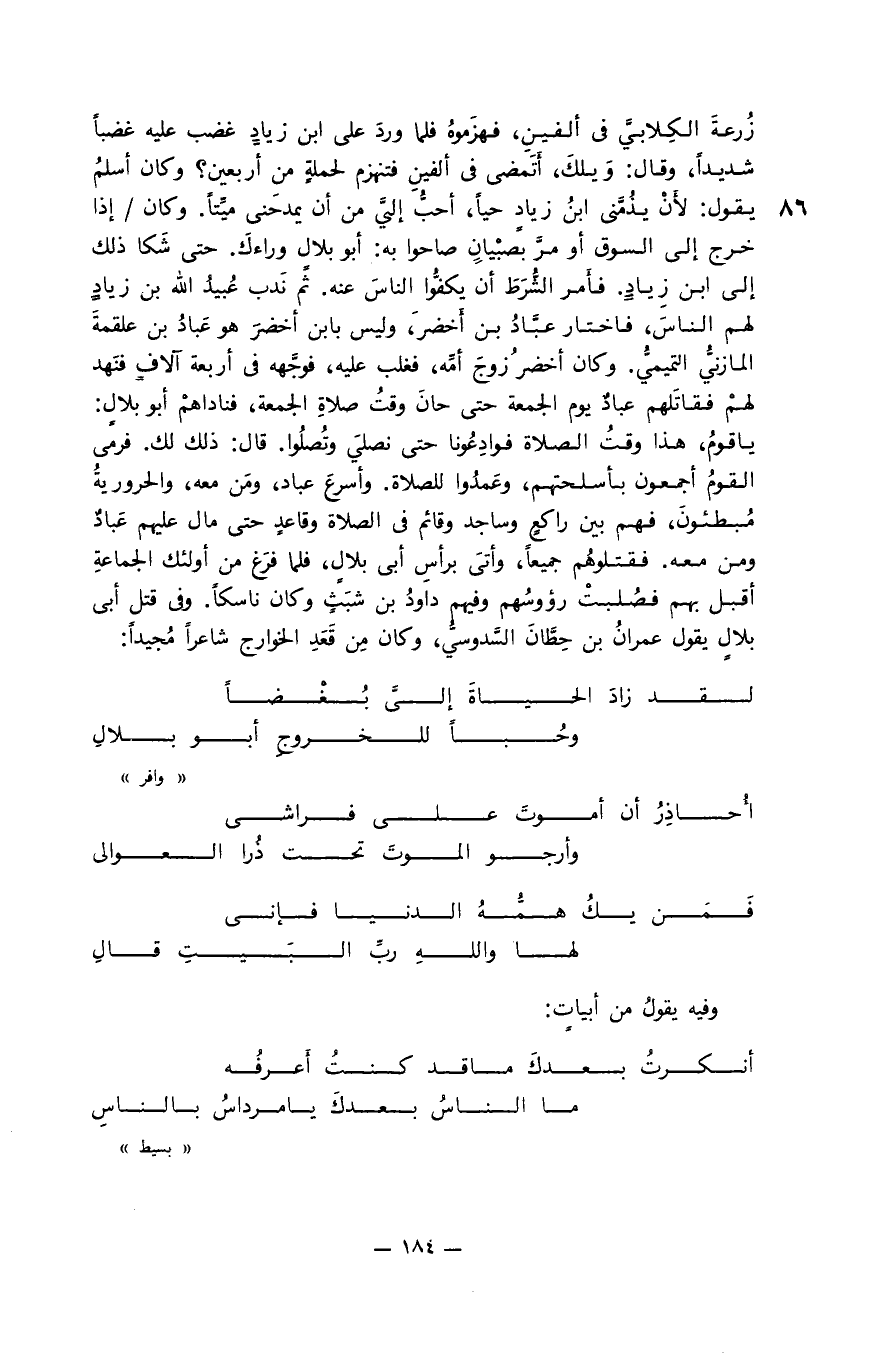 زُرعةَ الكِلابيَّ فى ألفينِ، فهزَموهُ فلما وردَ على ابن زيادٍ غضب عليه غضباً
شديداً، وقال: وَيلكَ، أَتَمضى فى ألفينِ فتنهزم لحملةٍ من أربعين؟ وكان أسلمُ
٨٦ يقول: لأَنْ يذُمَّنى ابنُ زيادٍ حياً، أحبُّ إليَّ من أن يمدحَنى ميِّتاً. وكان / إذا
خرج إلى السوق أو مرَّ بصبْيانٍ صاحوا به: أبو بلالٍ وراءكَ. حتى شَكا ذلك
إلى ابن زيادٍ. فأمر الشُّرَطَ أن يكفُّوا الناسَ عنه. ثُم نَدب عُبيدُ الله بن زيادٍ
لهم الناسَ، فاختار عبَّادُ بن أَخضرَ، وليس بابن أخضرَ هو عَبادُ بن علقمةَ
المازنيُّ التميميُّ. وكان أخضرُ زوجَ أمّه، فغلب عليه، فوجَّهه فى أربعة آلافٍ فنَهد
لهمْ فقاتَلهم عبادٌ يوم الجمعة حتى حانَ وقتُ صلاةِ الجمعة، فناداهمْ أبو بلالٍ:
ياقومُ، هذا وقتُ الصلاة فوادِعُونا حتى نصليَ وتُصلُوا. قال: ذلك لك. فرمى
القومُ أجمعون بأسلحتهم، وعَمدُوا للصلاة. وأسرعَ عباد، ومَن معه، والحروريةُ
مُبطئونَ، فهم بين راكعٍ وساجد وقائم فى الصلاة وقاعدٍ حتى مال عليهم عَبادٌ
ومن معه. فقتلوهُم جميعاً، وأتىَ برأسِ أبى بلالٍ، فلما فرَغ من أولئك الجماعةِ
أقبل بهم فصُلبتْ رؤوسُهم وفيهم داودُ بن شبَثٍ وكان ناسكاً. وفى قتل أبى
بلالٍ يقول عمرانُ بن حِطَّانَ السَّدوسيُّ، وكان مِن قَعَدِ الخوارج شاعراً مُجيداً:
لقد زادَ الحياةَ إلىَّ بُغْضاً
وحُباً للخروجِ أبو بلالِ
« وافر »
أُحاذِرُ أن أموتَ على فراشى
وأرجو الموتَ تحت ذُرا العوالى
فَمَن يكُ همُّهُ الدنيا فإنى
لها واللهِ ربِّ البَيتِ قالِ
وفيه يقولُ من أبياتٍ:
أنكرتُ بعدكَ ماقد كنتُ أَعرفُه
ما الناسُ بعدكَ يامرداسُ بالناسِ
« بسيط »
— ١٨٤ —